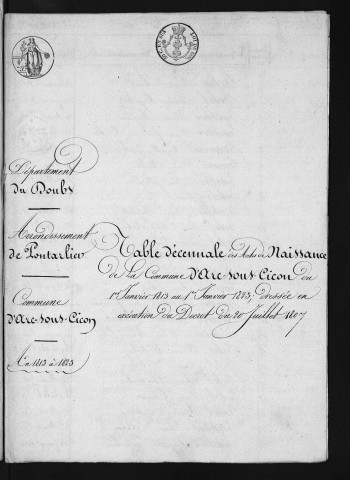 Département
du Doubs
Arrondissement
de Pontarlier
Commune
d'Arc-sous-Cicon
An 1813 à 1823
Table décennale des Actes de Naissance
de la Commune d'Arc-sous-Cicon du
1er Janvier 1813 au 1er Janvier 1823, dressée en
exécution du Décret du 20 Juillet 1807